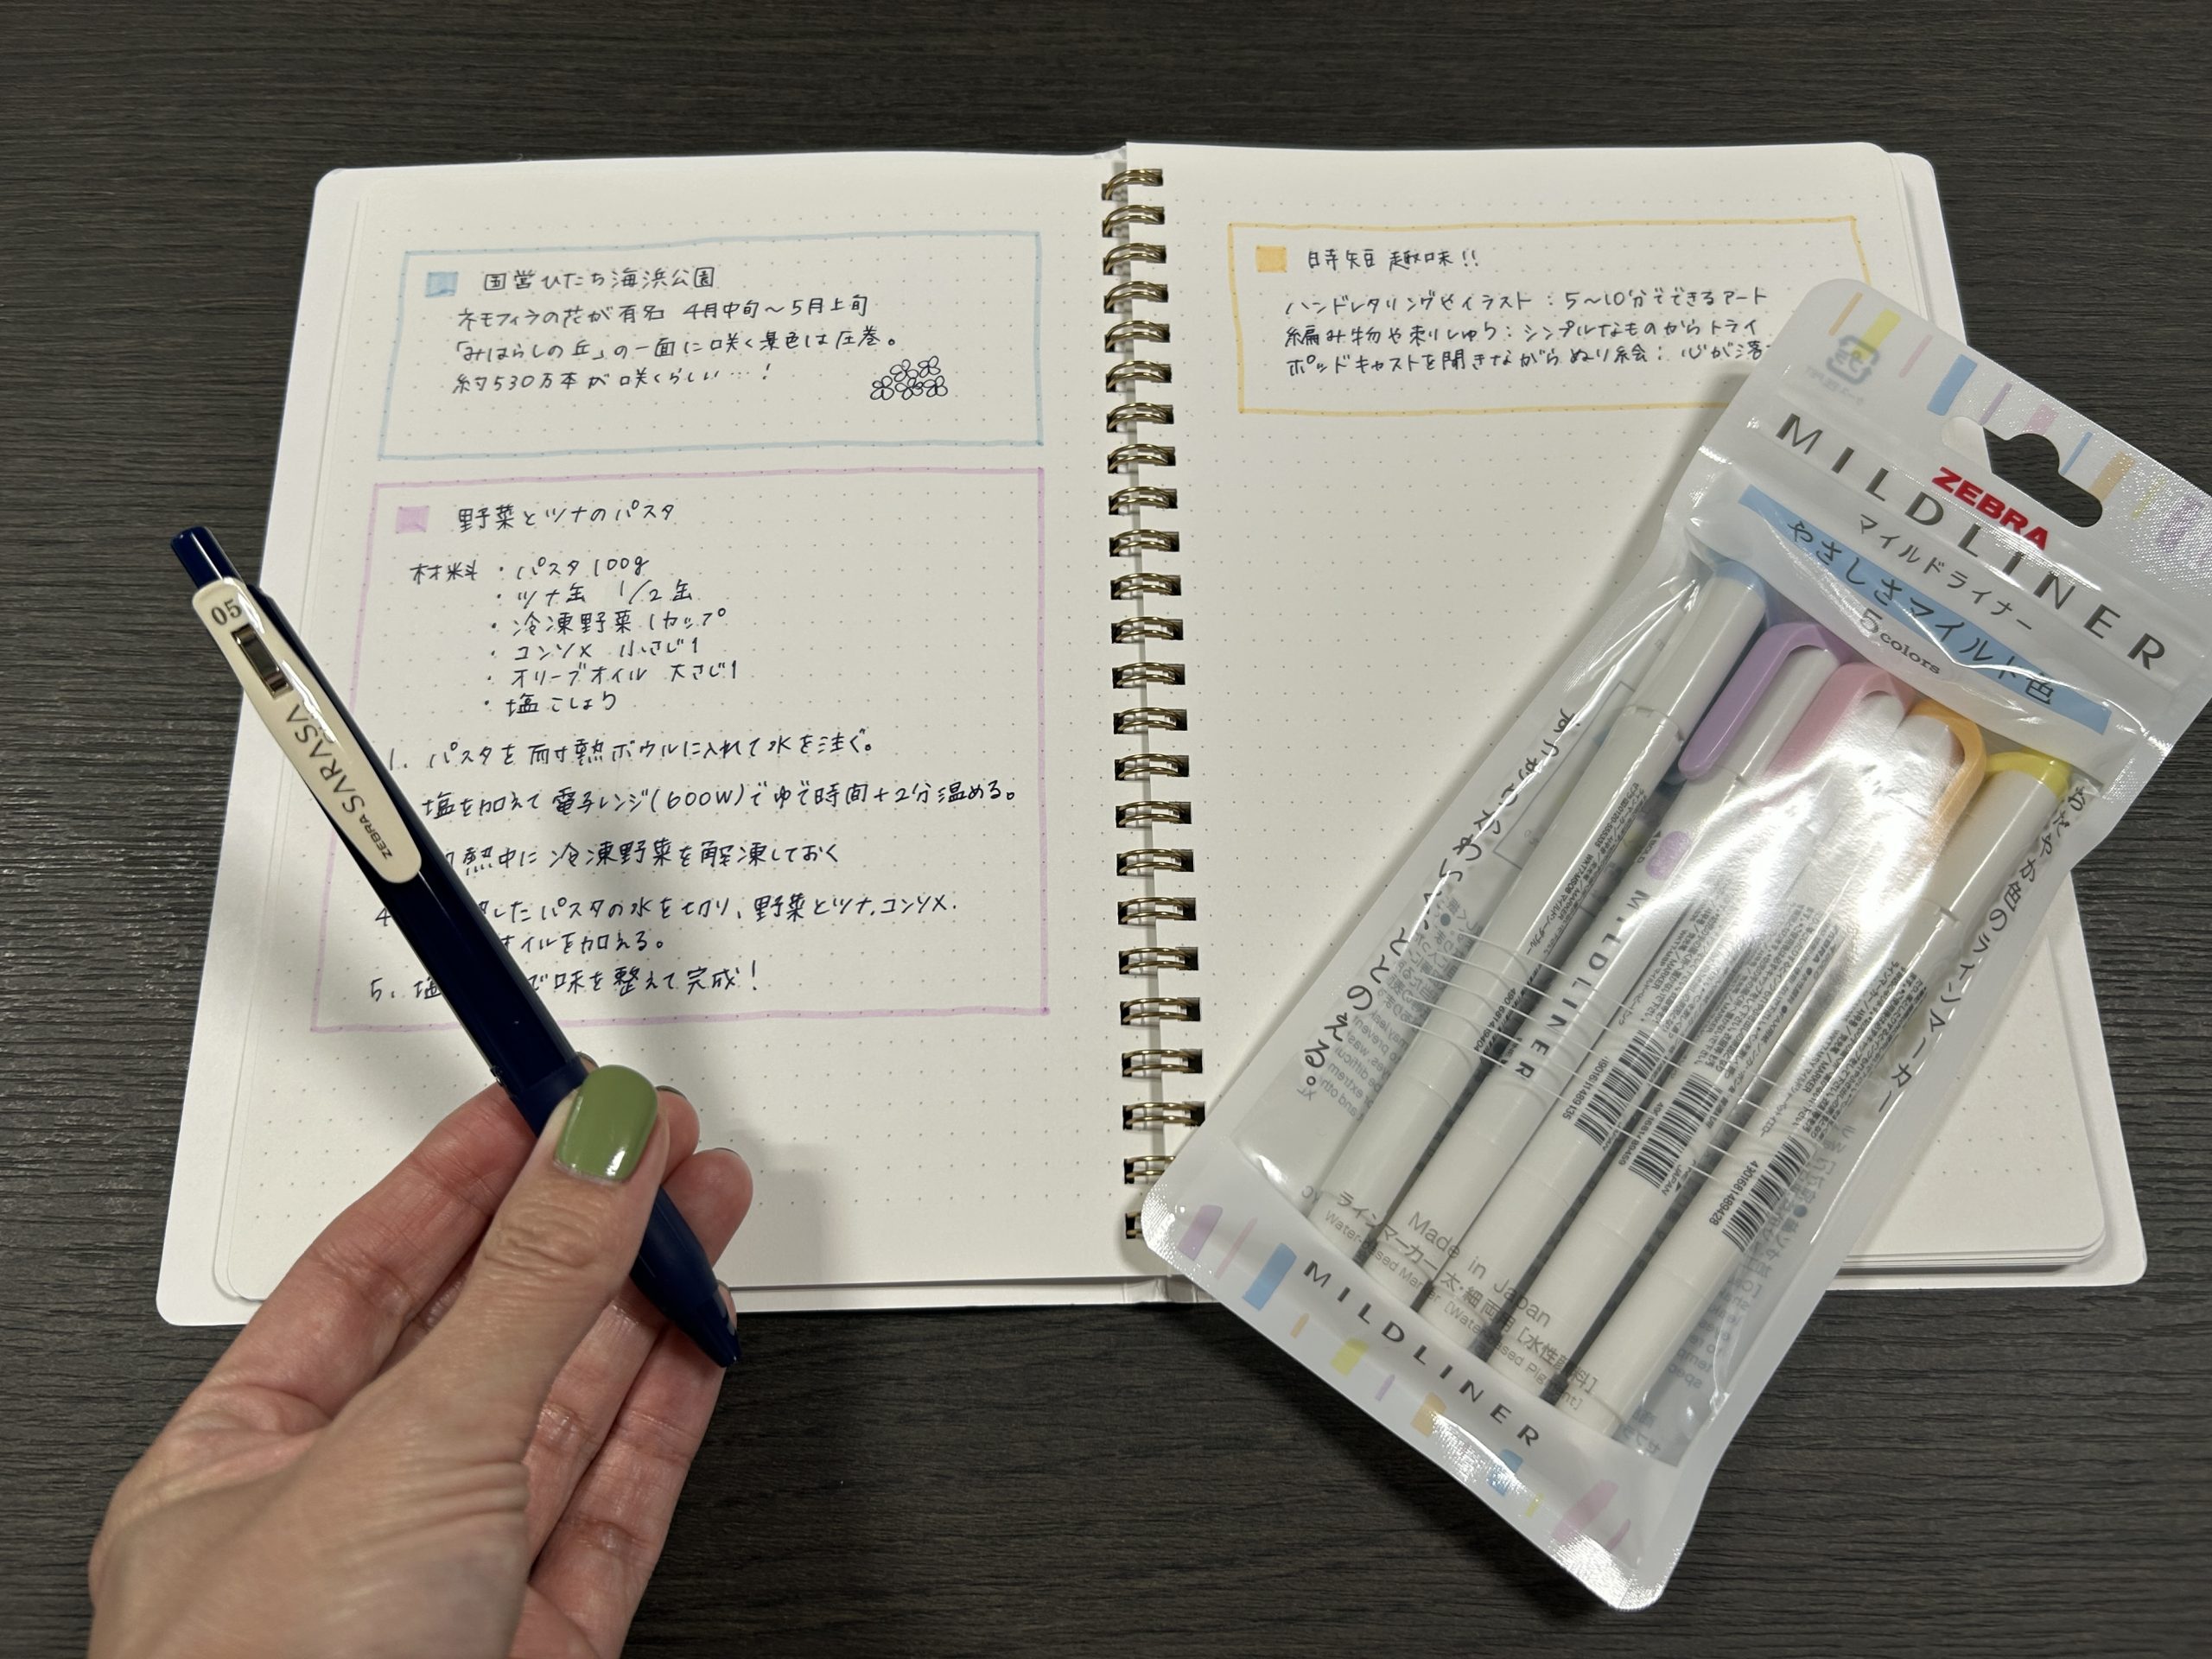 国営ひたち海浜公園
ネモフィラの花が有名 4月中旬〜5月上旬
「みはらしの丘」の一面に咲く景色は圧巻。
約530万本が咲くらしい…!
野菜とツナのパスタ
材料 ・パスタ 100g
・ツナ缶 1/2缶
・冷凍野菜 1カップ
・コンソメ 小さじ1
・オリーブオイル 大さじ1
・塩こしょう
1. パスタを耐熱ボウルに入れて水を注ぐ。
塩を加えて電子レンジ(600W)でゆで時間+2分温める。
熱中に冷凍野菜を解凍しておく
4 したパスタの水を切り、野菜とツナ、コンソメ、
オイルを加える。
5. 塩 で味を整えて完成!
時短 趣味!!
ハンドレタリングやイラスト:5〜10分でできるアート
編み物や刺しゅう:シンプルなものからトライ
ポッドキャストを聞きながらぬり絵:心が落
05
SARASA
ZEBRA
ZEBRA
MILDLINER
マイルドライナー
やさしさマイルド色
5colors
ととのえる。
おだやか色のラインマーカー
MILDLINER
4901681489435
4901681489428
Made in Japan
ラインマーカー 太・細 両用 [水性顔料]
Water-based Marker [Water-based Pigment]
MILDLINER